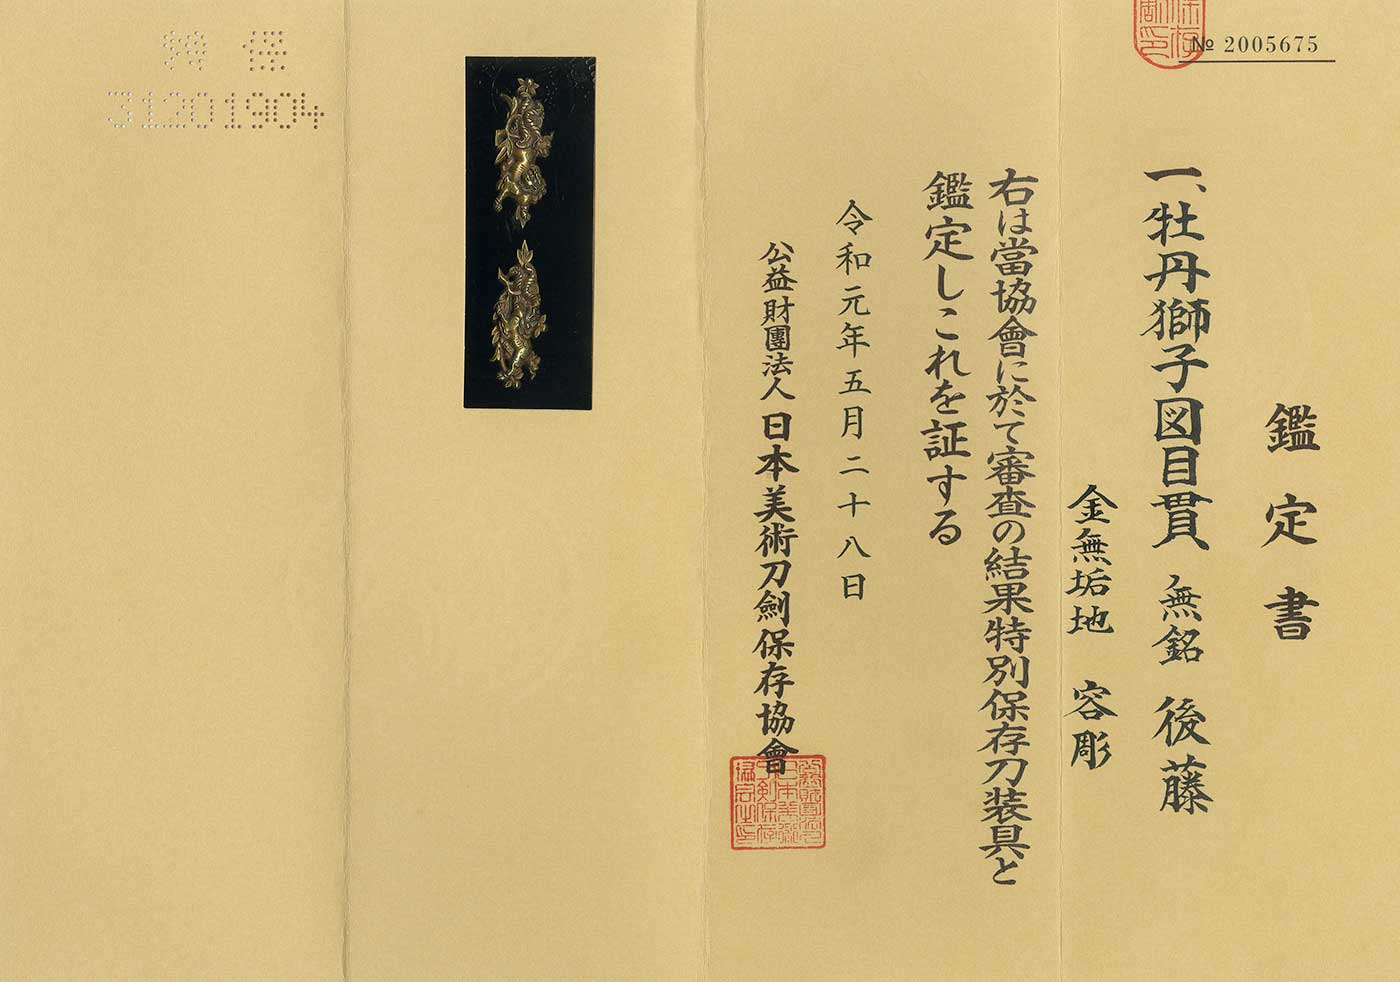 № 2005675
鑑定書
一、牡丹獅子図目貫 無銘 後藤
金無垢地 容彫
右は當協會に於て審査の結果特別保存刀装具と
鑑定しこれを証する
令和元年五月二十八日
公益財團法人 日本美術刀劍保存協會
特保
31201904